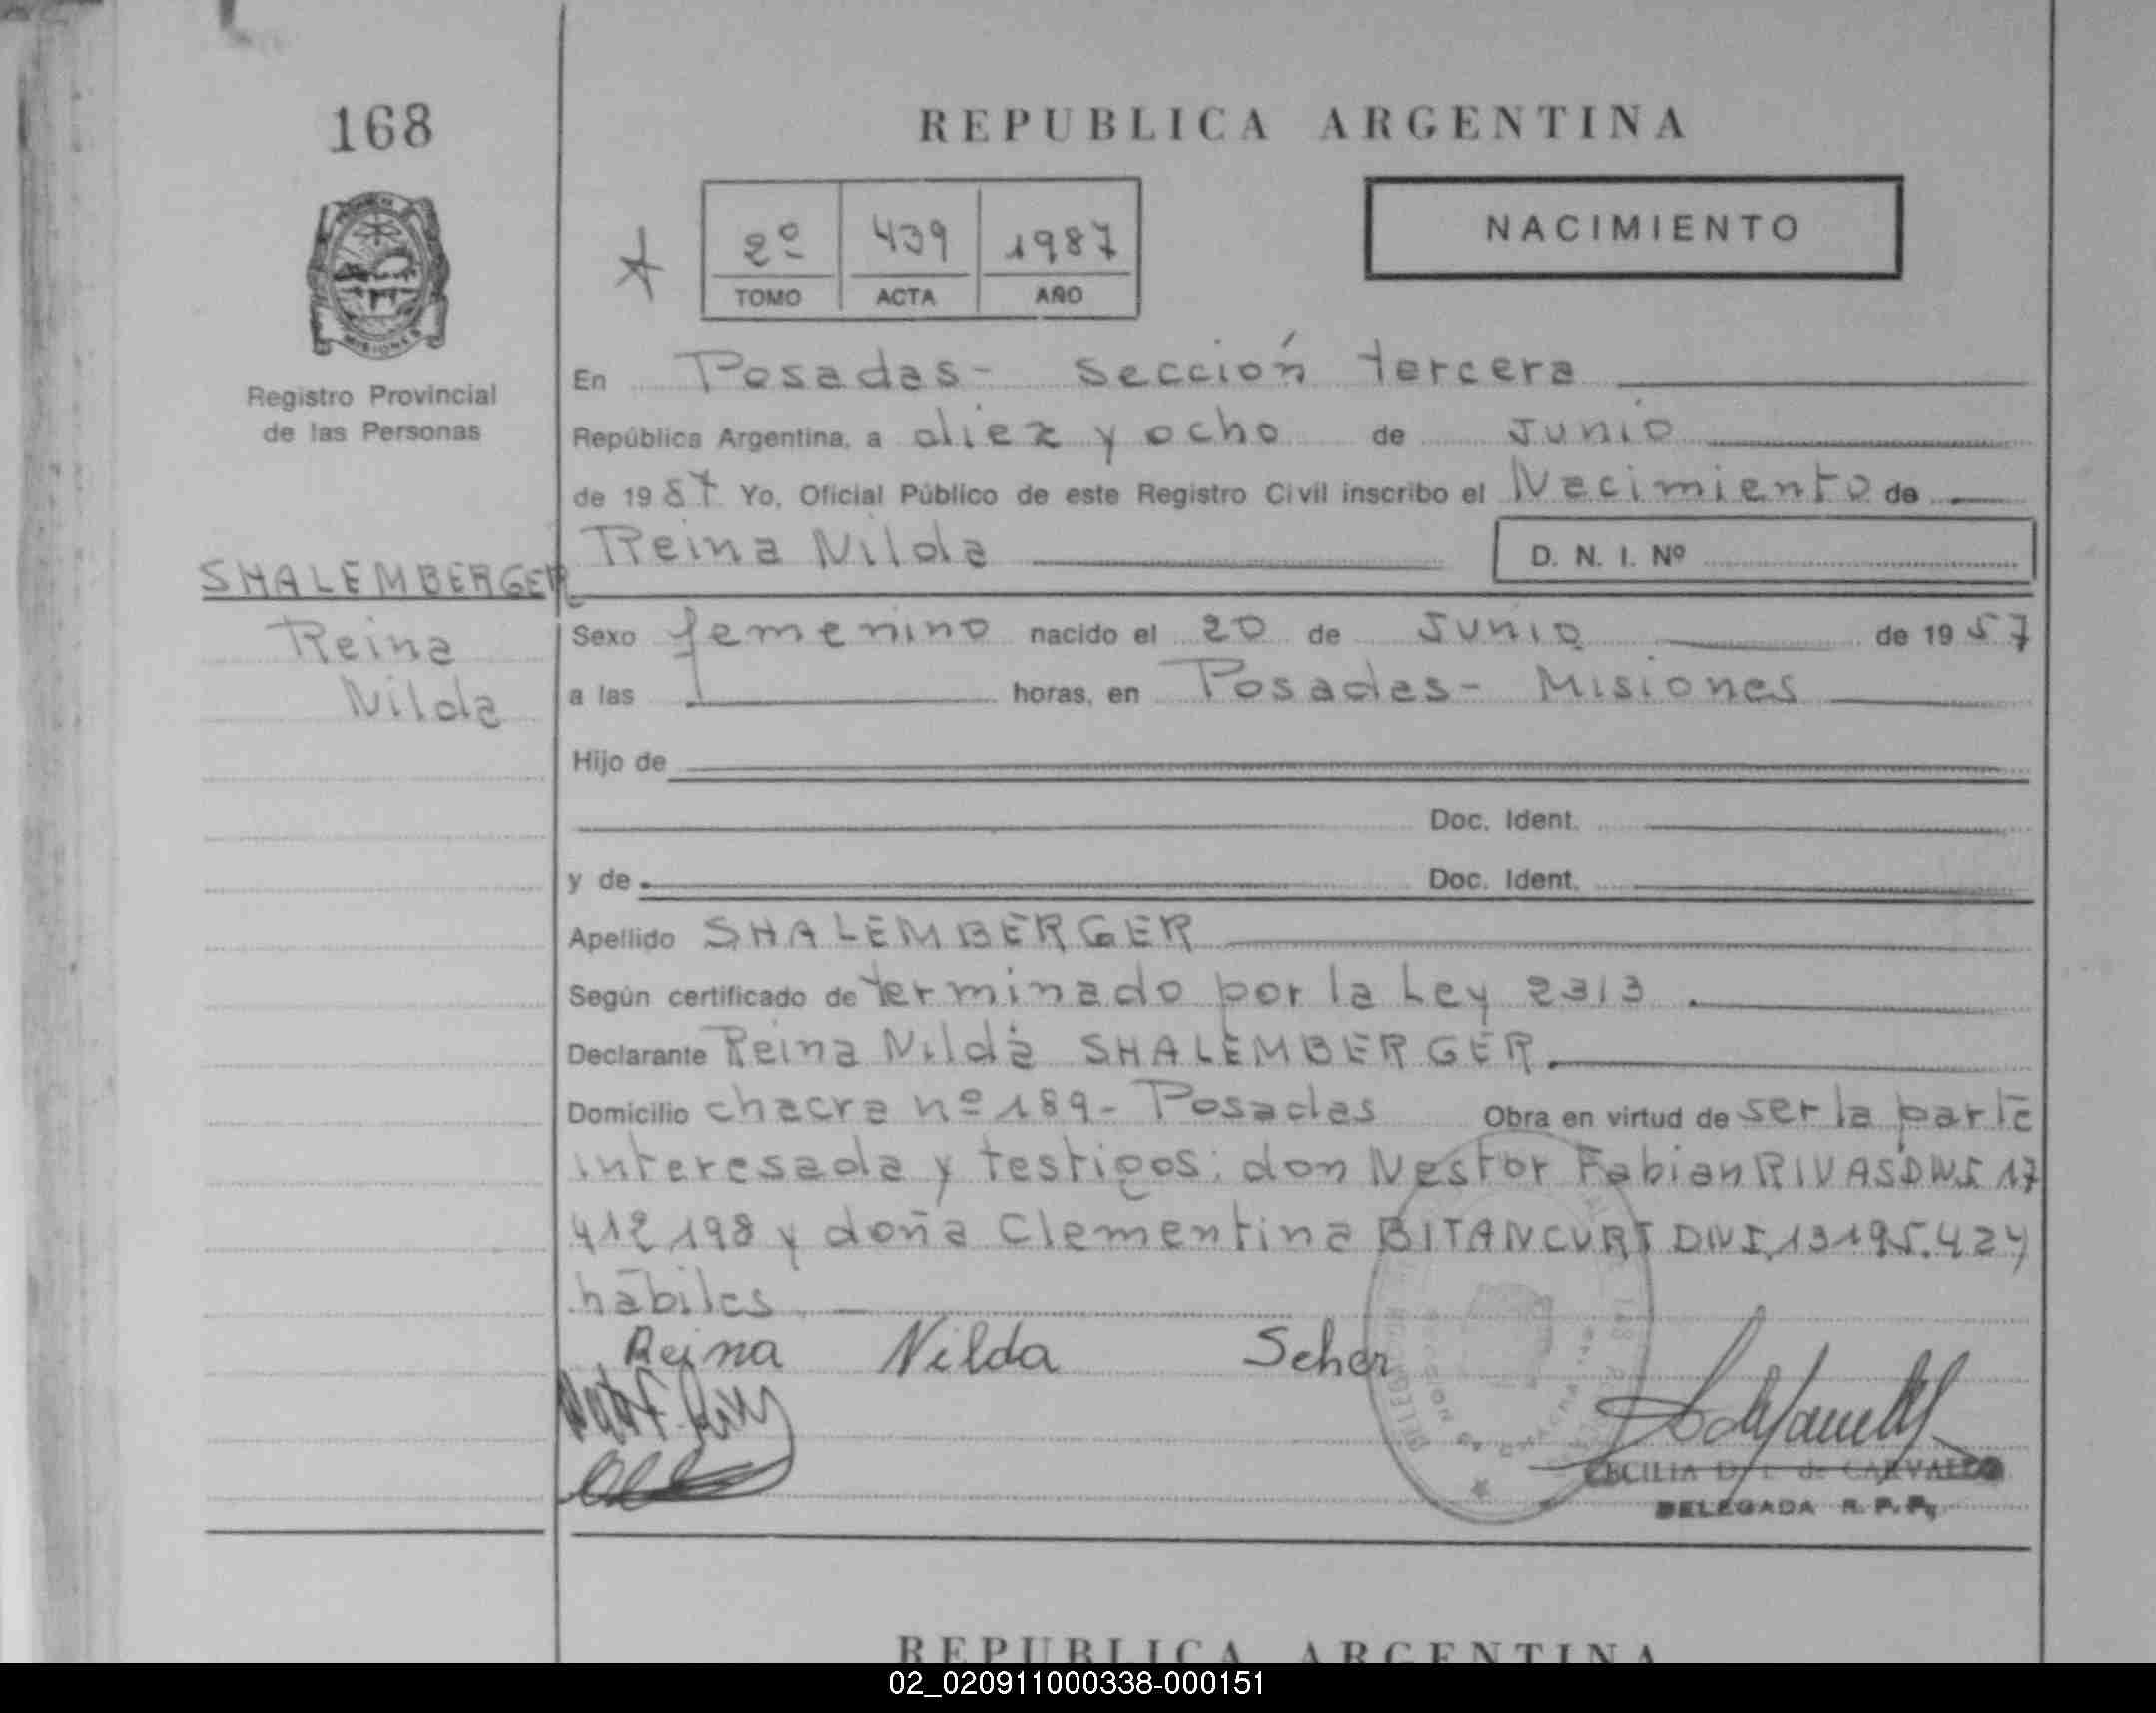 168
REPUBLICA ARGENTINA
2º 439 1987
TOMO ACTA AÑO
NACIMIENTO
MISIONES
Registro Provincial
de las Personas
En Posadas- Sección tercera
República Argentina, a diez y ocho de Junio
de 1987 Yo, Oficial Público de este Registro Civil inscribo el Nacimiento de
Reina Nilda
D. N. I. Nº
SHALEMBERGER
Reina
Nilda
Sexo femenino nacido el 20 de Junio de 1957
a las horas, en Posadas- Misiones
Hijo de
Doc. Ident.
y de Doc. Ident.
Apellido SHALEMBERGER
Según certificado de terminado por la Ley 2313.
Declarante Reina Nilda SHALEMBERGER.
Domicilio chacra nº 189- Posadas Obra en virtud de ser la parte
interesada y testigos: don Nestor Fabian RIVAS DNI 17
412 198 y doña Clementina BITANCURT DNI 13195.424
hábiles
Reina Nilda Scher
CECILIA de CARVALLO
DELEGADA R. P. P.
REPUBLICA ARGENTINA
02_020911000338-000151